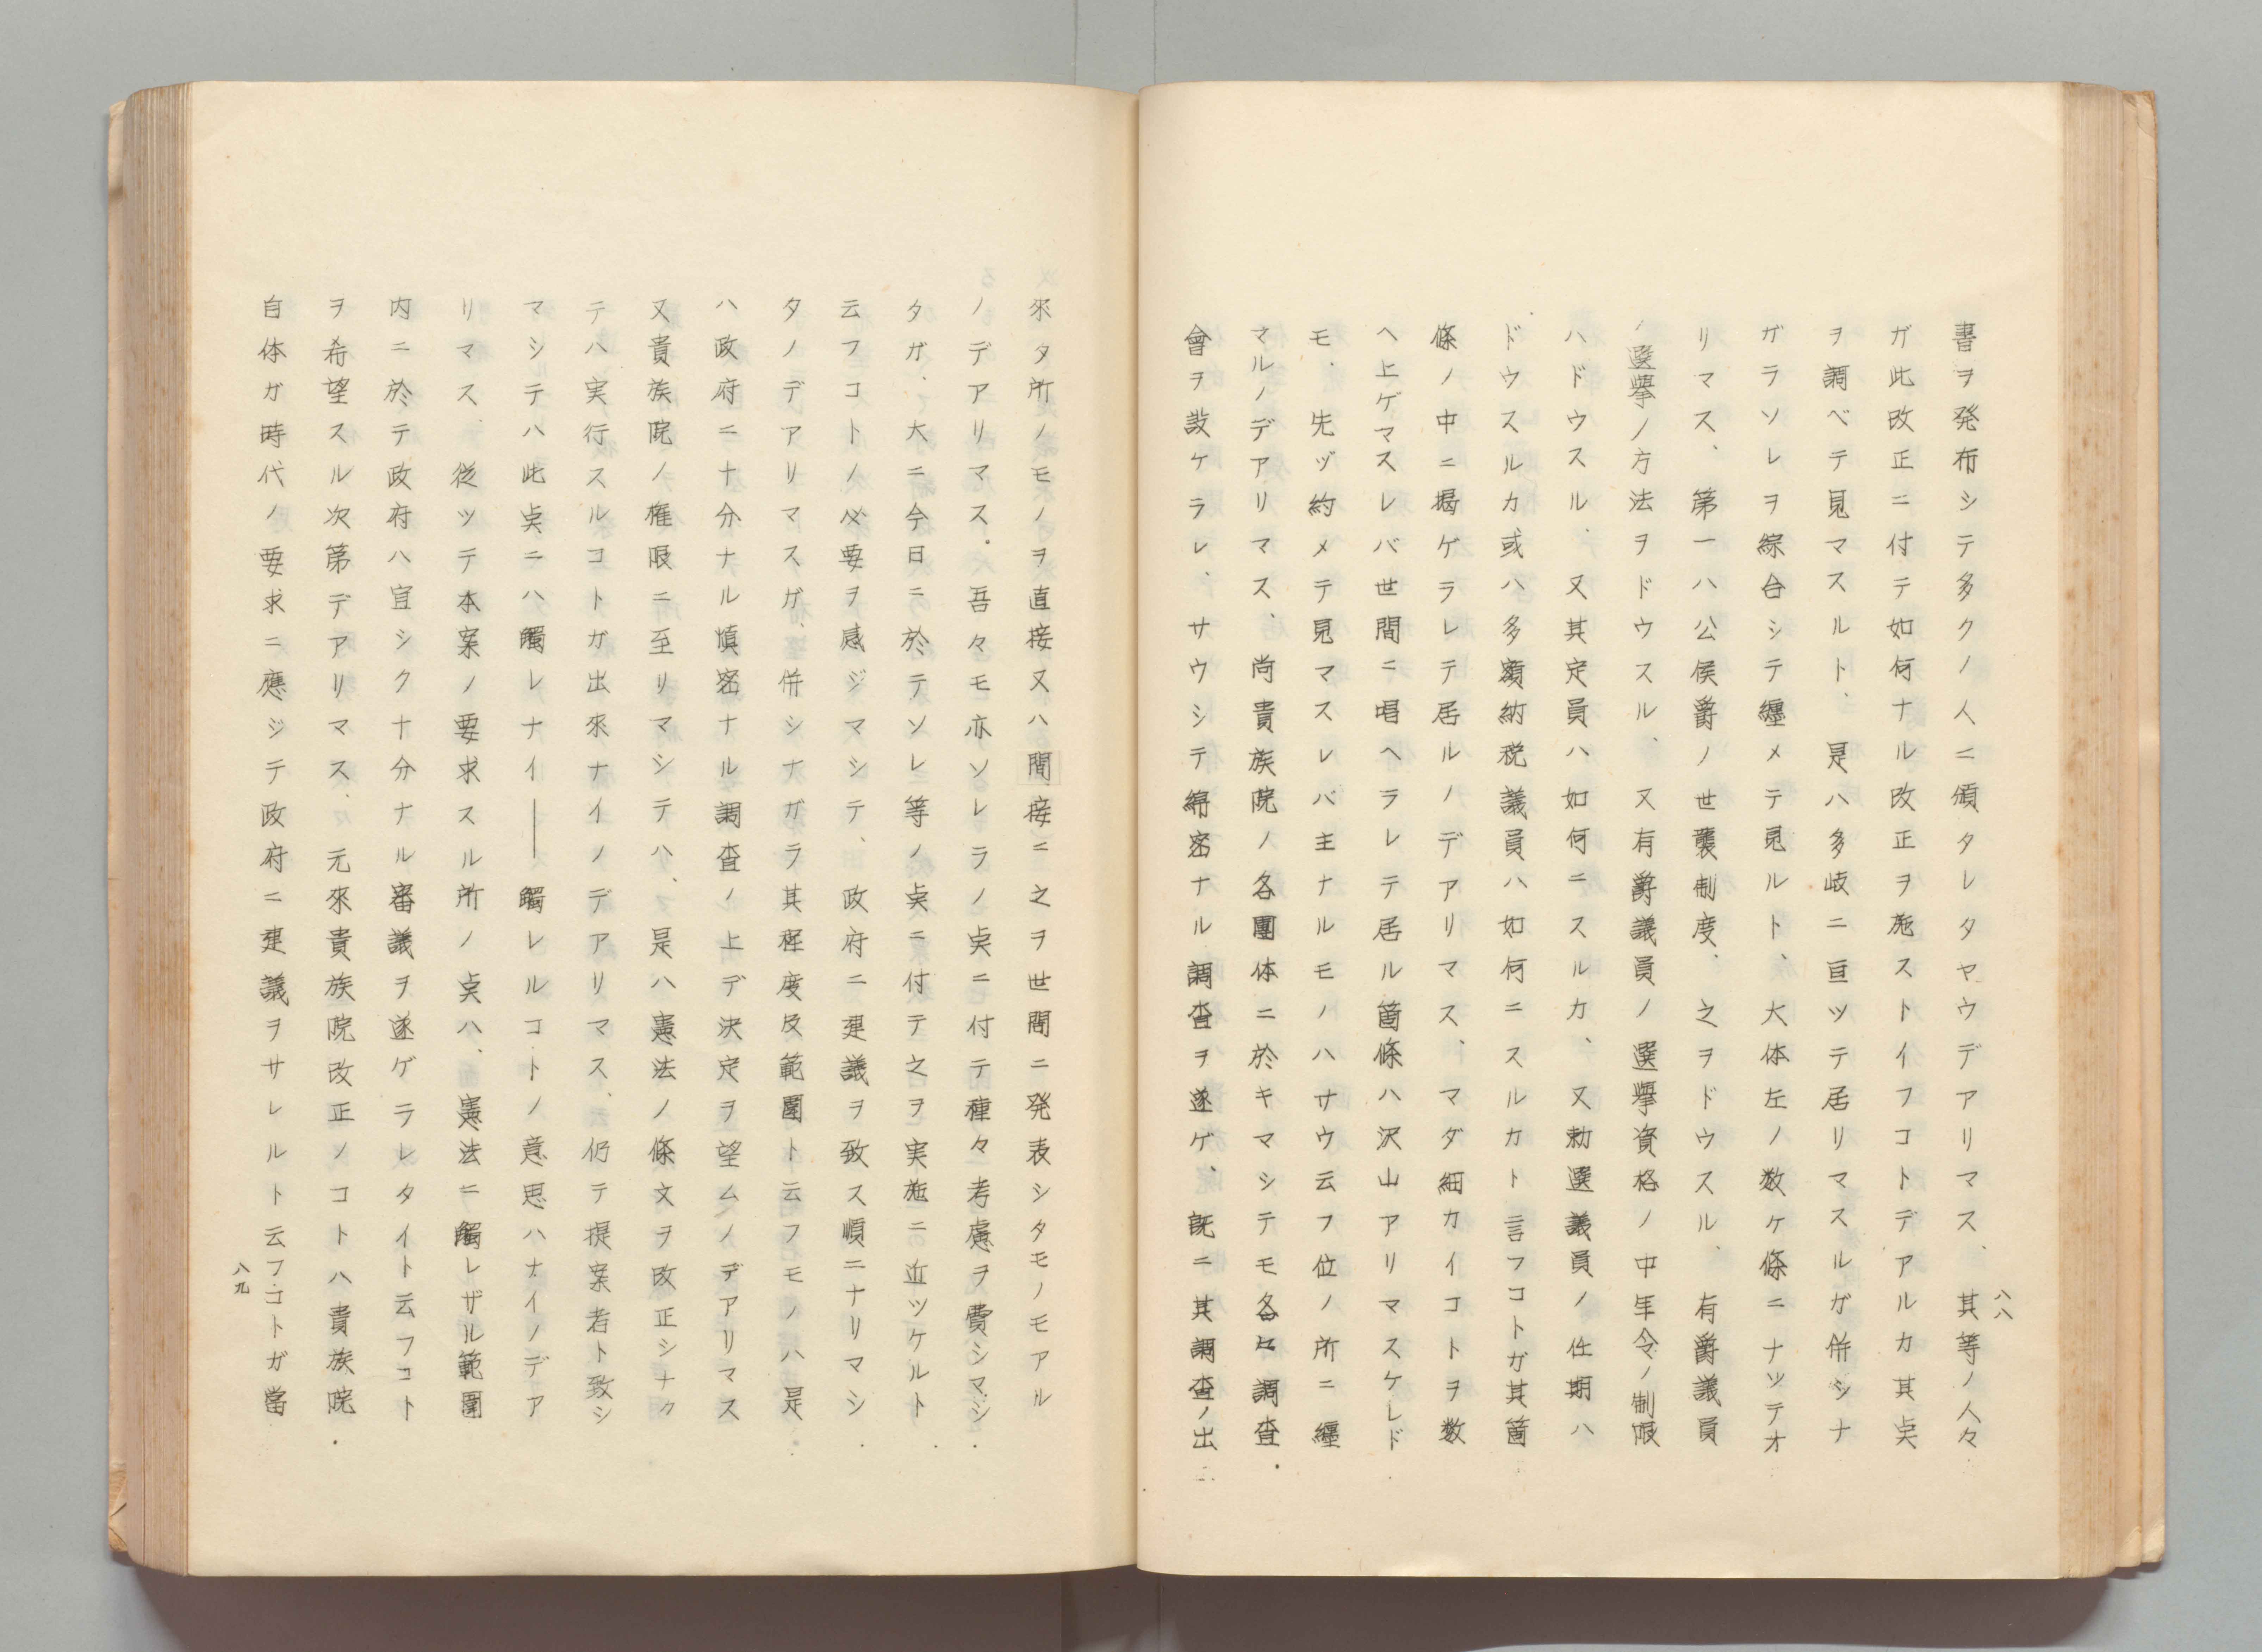 書ヲ発布シテ多クノ人ニ頒タレタヤウデアリマス、其等ノ人々
ガ此改正ニ付テ如何ナル改正ヲ施ストイフコトデアルカ其点
ヲ調ベテ見マスルト、是ハ多岐ニ亘ツテ居リマスルガ併シナ
ガラソレヲ綜合シテ纏メテ見ルト、大体左ノ数ケ條ニナツテオ
リマス、第一ハ公侯爵ノ世襲制度、之ヲドウスル、有爵議員
ノ選擧ノ方法ヲドウスル、又有爵議員ノ選擧資格ノ中年令ノ制限
ハドウスル、又其定員ハ如何ニスルカ、又勅選議員ノ任期ハ
ドウスルカ或ハ多額納税議員ハ如何ニスルカト言フコトガ其箇
條ノ中ニ掲ゲラレテ居ルノデアリマス、マダ細カイコトヲ数
ヘ上ゲマスレバ世間ニ唱ヘラレテ居ル箇條ハ沢山アリマスケレド
モ、先ヅ約メテ見マスレバ主ナルモノハサウ云フ位ノ所ニ纒
マルノデアリマス、尚貴族院ノ各團体ニ於キマシテモ各々調査
會ヲ設ケラレ、サウシテ綿密ナル調査ヲ遂ゲ、既ニ其調査ノ出
八八
來タ所ノモノヲ直接又ハ間接ニ之ヲ世間ニ発表シタモノモアル
ノデアリマス。吾々モ亦ソレラノ点ニ付テ種々考慮ヲ費シマシ
タガ、大ニ今日ニ於テソレ等ノ点ニ付テ之ヲ実施ニ近ヅケルト
云フコトノ必要ヲ感ジマシテ、政府ニ建議ヲ致ス順ニナリマシ
タノデアリマスガ、併シナガラ其程度及範圍ト云フモノハ是
ハ政府ニ十分ナル慎密ナル調査ノ上デ決定ヲ望ムノデアリマス
又貴族院ノ権限ニ至リマシテハ、是ハ憲法ノ條文ヲ改正シナク
テハ実行スルコトガ出來ナイノデアリマス、仍テ提案者ト致シ
マシテハ此点ニハ觸レナイ――觸レルコトノ意思ハナイノデア
リマス、従ツテ本案ノ要求スル所ノ点ハ、憲法ニ觸レザル範圍
内ニ於テ政府ハ宜シク十分ナル審議ヲ遂ゲラレタイト云フコト
ヲ希望スル次第デアリマス、元來貴族院改正ノコトハ貴族院
自体ガ時代ノ要求ニ應ジテ政府ニ建議ヲサレルト云フコトガ當
八九